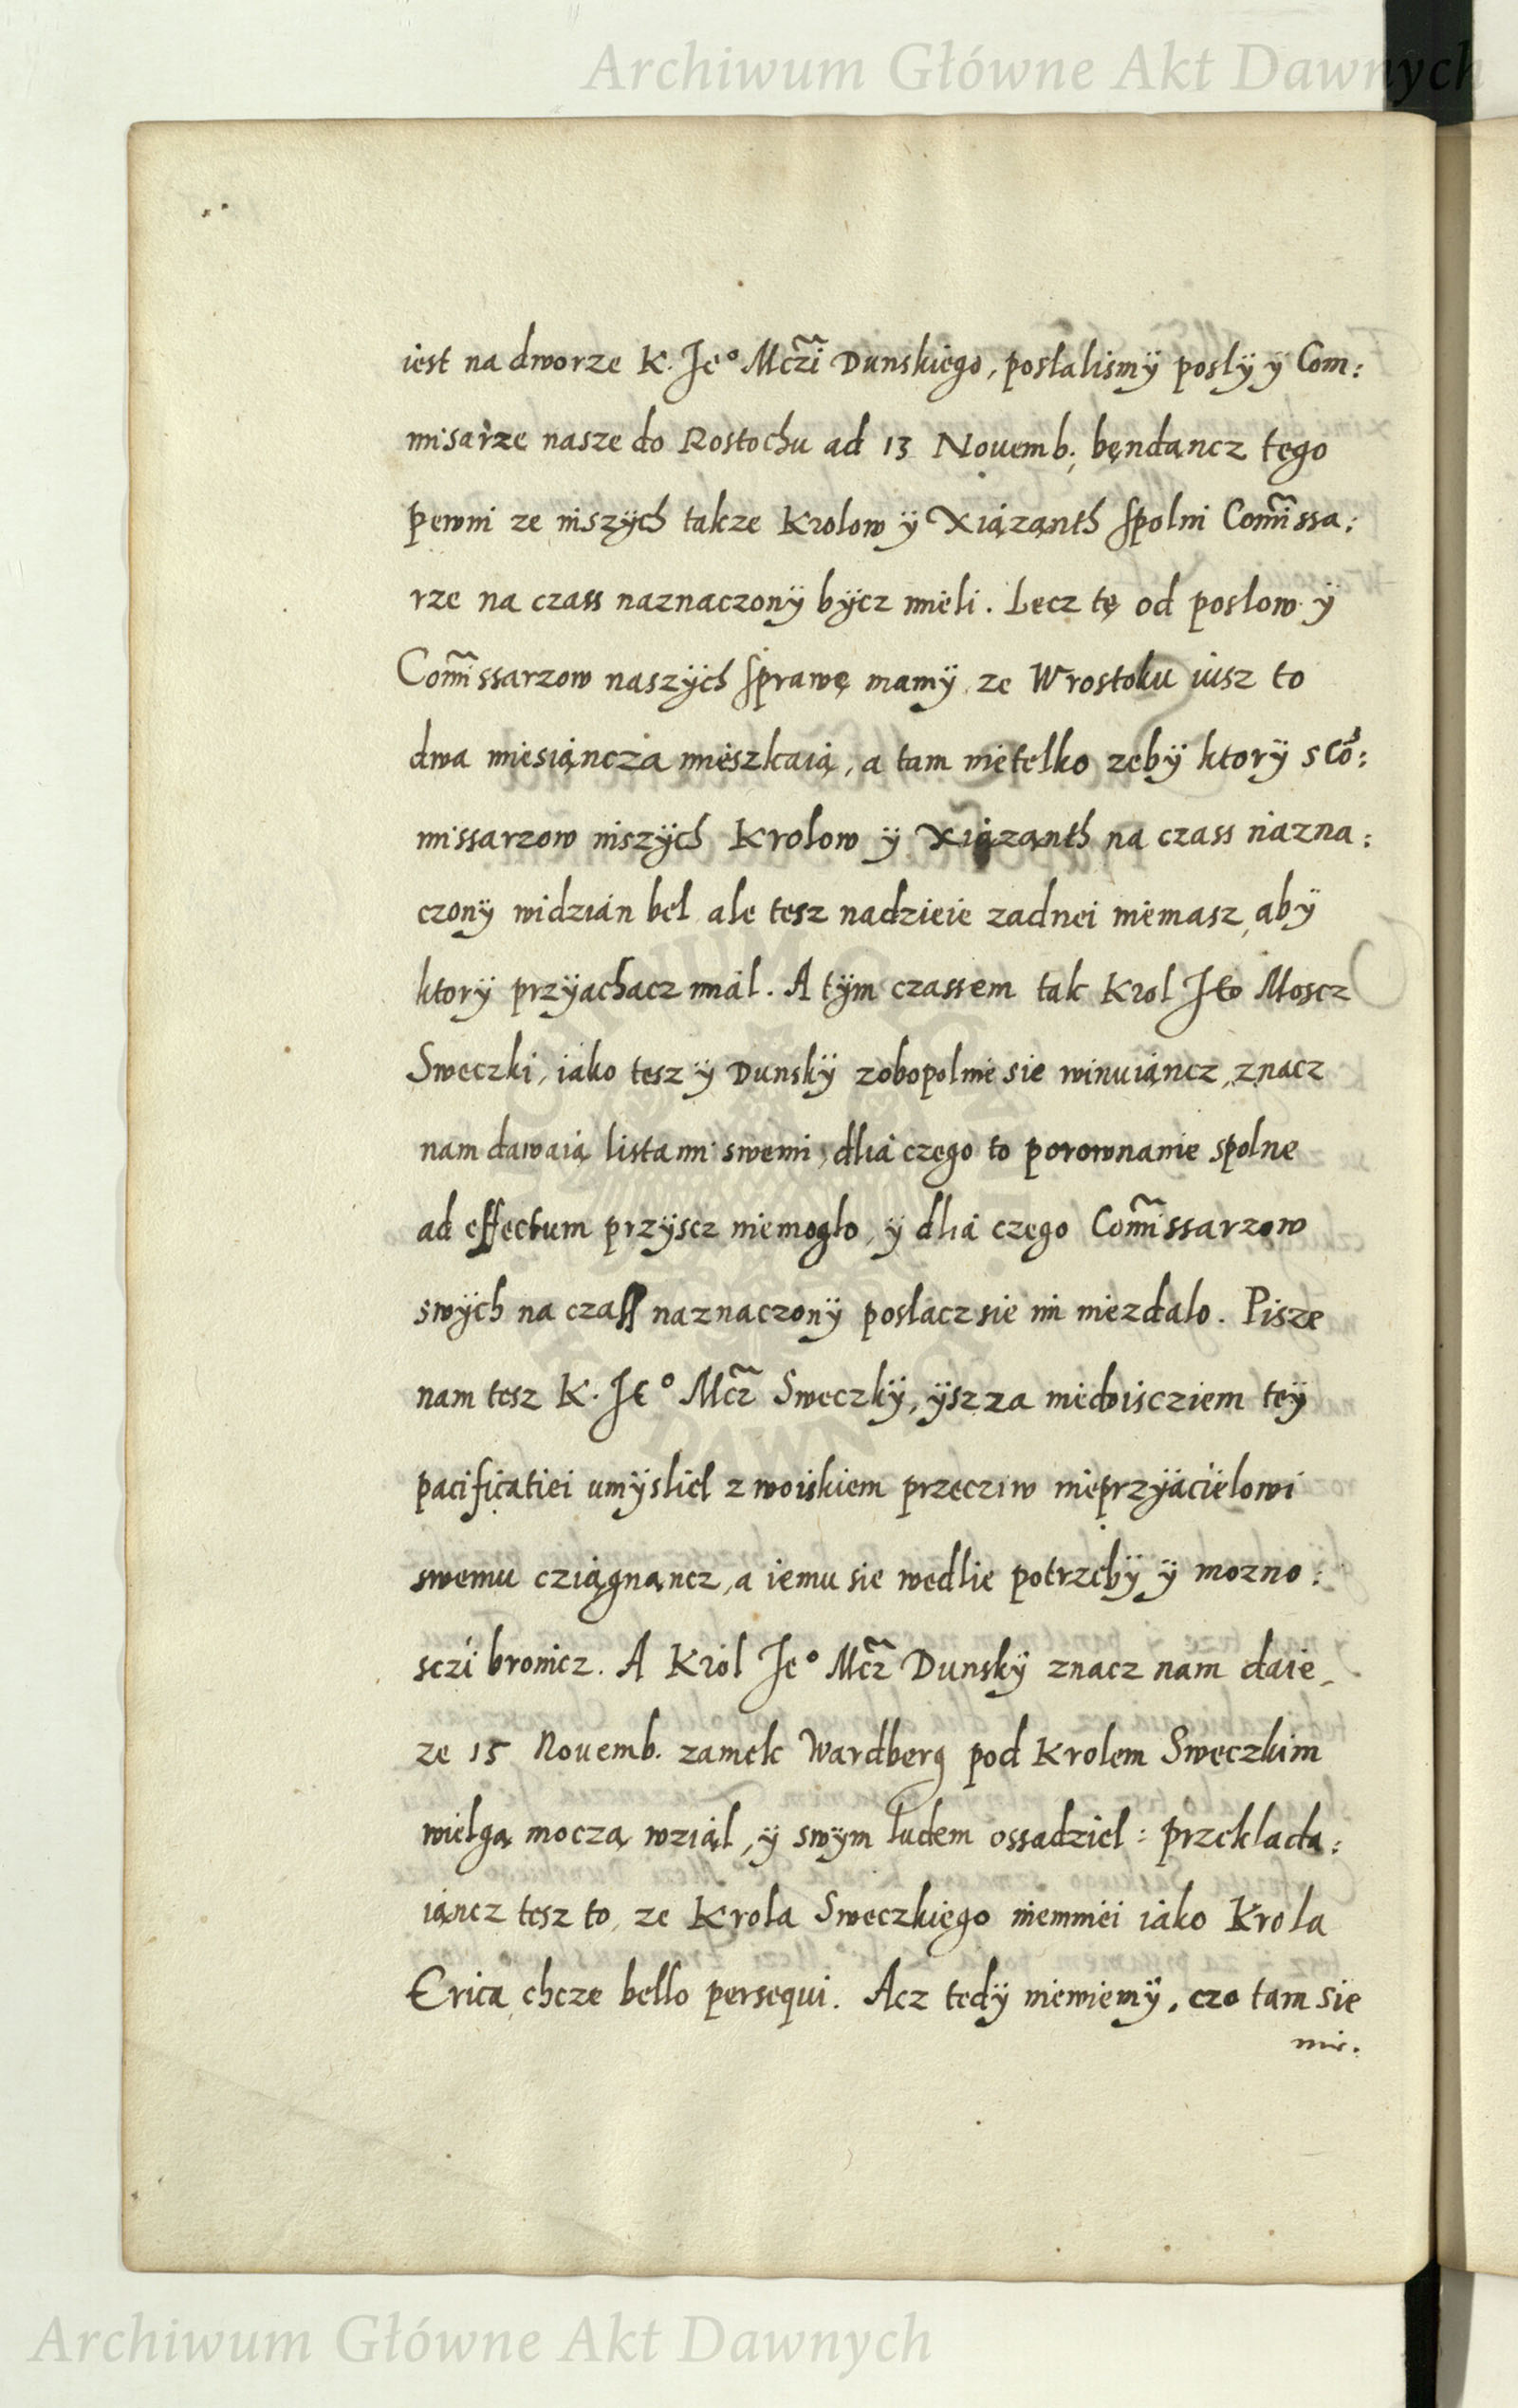 Archiwum Główne Akt Dawnych
iest na dworze K. Je° Mczi Dunskiego, poslalismÿ poslÿ ÿ Com:
misarze nasze do Rostochu ad 13 Nouemb: bęndancz tego
pewni ze niszÿch takze Krolow ÿ Xiązanth spolni Comissa:
rze na czass naznaczonÿ bÿcz mieli. Lecz tę od poslow ÿ
Comissarzow naszÿch sprawę mamÿ, ze Wrostoku iusz to
dwa miesiąncza mieszkaią, a tam nietelko zebÿ ktorÿ s Co:
missarzow niszÿch Krolow ÿ Xiązanth na czass nazna:
czonÿ widzian bel ale tesz nadzieie zadnei niemasz, abÿ
ktorÿ przyachacz mial. A tÿm czassem tak Krol Jeo Moscz
Sweczki, iako tesz ÿ Dunskÿ zobopolnie sie winuiąncz, znacz
nam dawaią listami swemi, dlia czego to porownanie spolne
ad effectum przÿscz niemoglo, ÿ dlia czego Comissarzow
swÿch na czass naznaczonÿ poslacz sie im niezdalo. Pisze
nam tesz K. Je° Mcz Sweczkÿ, ÿsz za niedoisciem teÿ
pacificatiei umÿsliel z woiskiem przecziw nieprzÿacielowi
swemu cziągnąncz, a iemu sie wedlie potrzebÿ ÿ mozno:
sczi bronicz. A Krol Je° Mcz Dunskÿ znacz nam daie,
ze 15 Nouemb. zamek Wardberg pod Krolem Sweczkim
wielgą moczą wział, ÿ swÿm ludem ossadziel: przeklada:
iąncz tesz to, ze Krola Sweczkiego niemniei iako Krola
Erica, chcze bello persequi. Acz tedÿ niewiemÿ, czo tam sie
mie.
Archiwum Główne Akt Dawnych